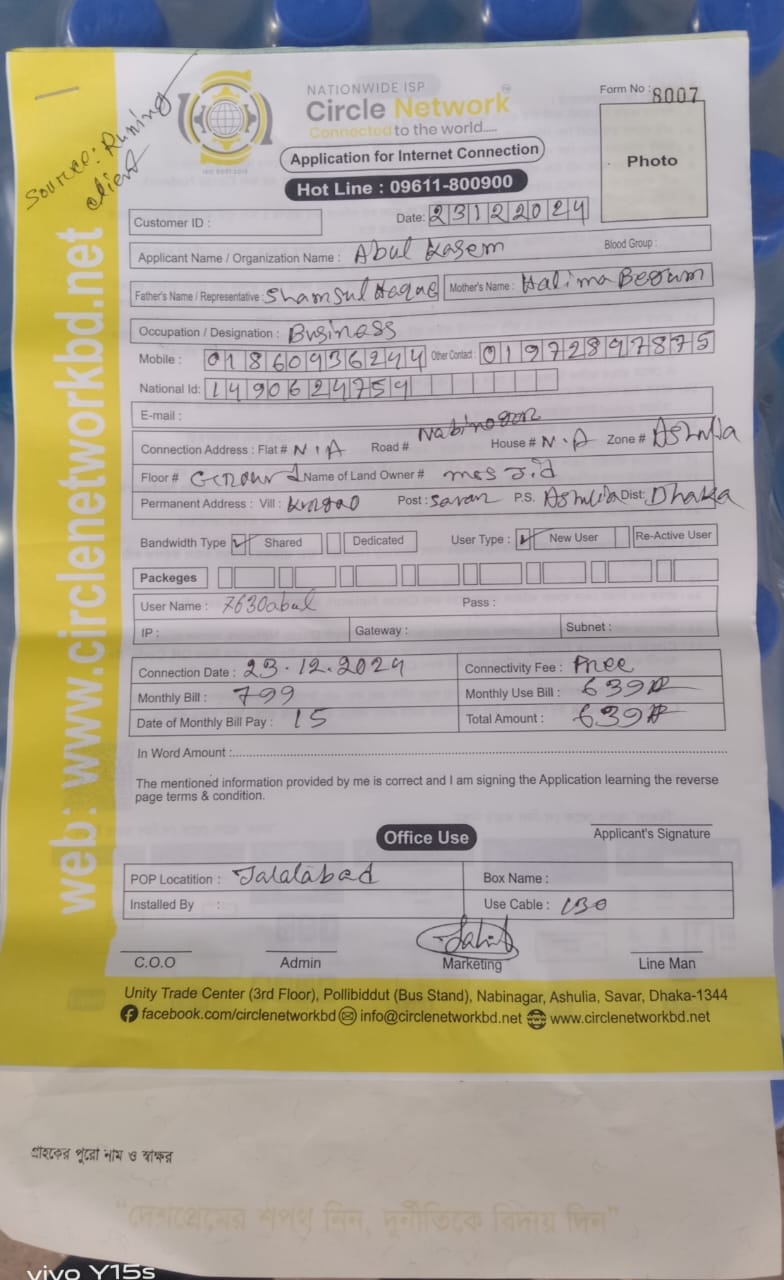 Source: Runing
client
NATIONWIDE ISP
Circle Network
Connected to the world.....
Form No : 8007
Application for Internet Connection
Photo
Hot Line : 09611-800900
Customer ID :
Date: 23122024
Applicant Name / Organization Name : Abul Kasem
Blood Group :
Father's Name / Representative : Shamsul Haque Mother's Name : Halima Begum
Occupation / Designation : Business
Mobile : 01860936244 Other Contact : 01972897875
National Id: 1490624759
E-mail :
Connection Address : Flat # N.A Road # Nabinogor House # N.A Zone # Ashulia
Floor # Ground Name of Land Owner # mosjid
Permanent Address : Vill : Post : Savar P.S. Ashulia Dist: Dhaka
Bandwidth Type ✓ Shared Dedicated User Type : ✓ New User Re-Active User
Packeges
User Name : 7630abul Pass :
IP : Gateway : Subnet :
Connection Date : 23.12.2024 Connectivity Fee : Free
Monthly Bill : 799 Monthly Use Bill : 639
Date of Monthly Bill Pay : 15 Total Amount : 639
In Word Amount :
The mentioned information provided by me is correct and I am signing the Application learning the reverse
page terms & condition.
Applicant's Signature
Office Use
POP Locatition : Jalalabad Box Name :
Installed By : Use Cable : 130
C.O.O Admin Marketing Line Man
Unity Trade Center (3rd Floor), Pollibiddut (Bus Stand), Nabinagar, Ashulia, Savar, Dhaka-1344
facebook.com/circlenetworkbd info@circlenetworkbd.net www.circlenetworkbd.net
web: www.circlenetworkbd.net
গ্রাহকের পুরো নাম ও স্বাক্ষর
“দেশপ্রেমের শপথ নিন, দুর্নীতিকে বিদায় দিন”
vivo Y15s